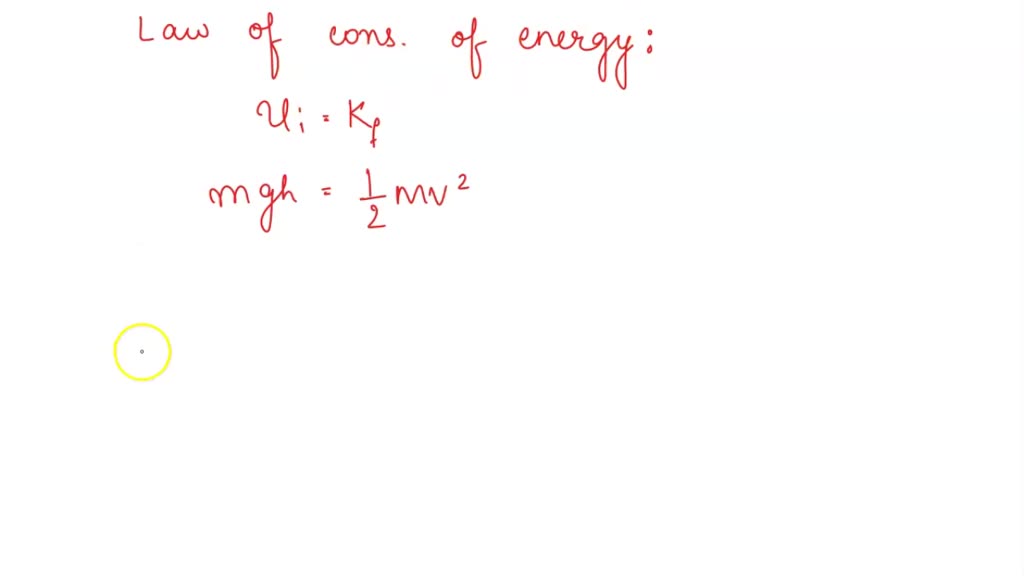 Law of cons. of energy:
Ui = Kf
mgh = 1/2 mv²